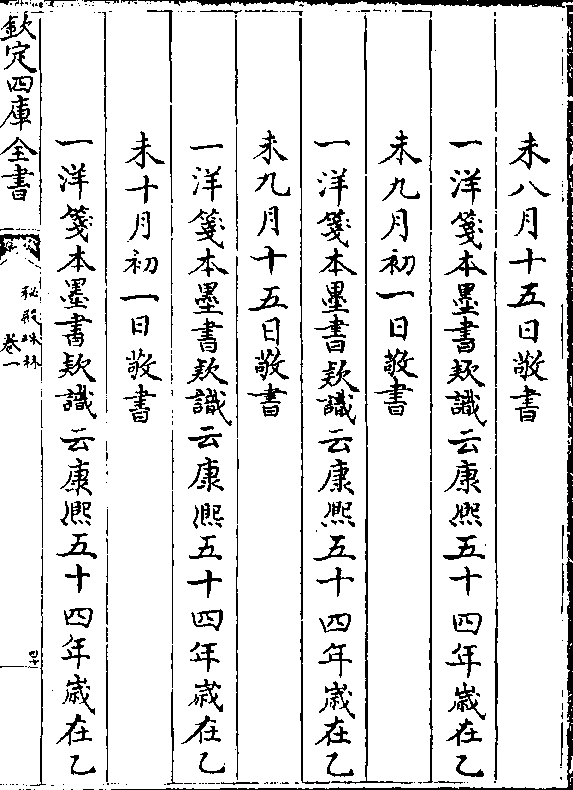 未八月十五日敬書
一洋箋本墨書欵識云康熙五十四年歳在乙
未九月初一日敬書
一洋箋本墨書欵識云康熙五十四年歳在乙
未九月十五日敬書
一洋箋本墨書欵識云康熙五十四年歳在乙
未十月初一日敬書
一洋箋本墨書欵識云康熙五十四年歳在乙
欽定四庫全書
秘殿珠林
卷一